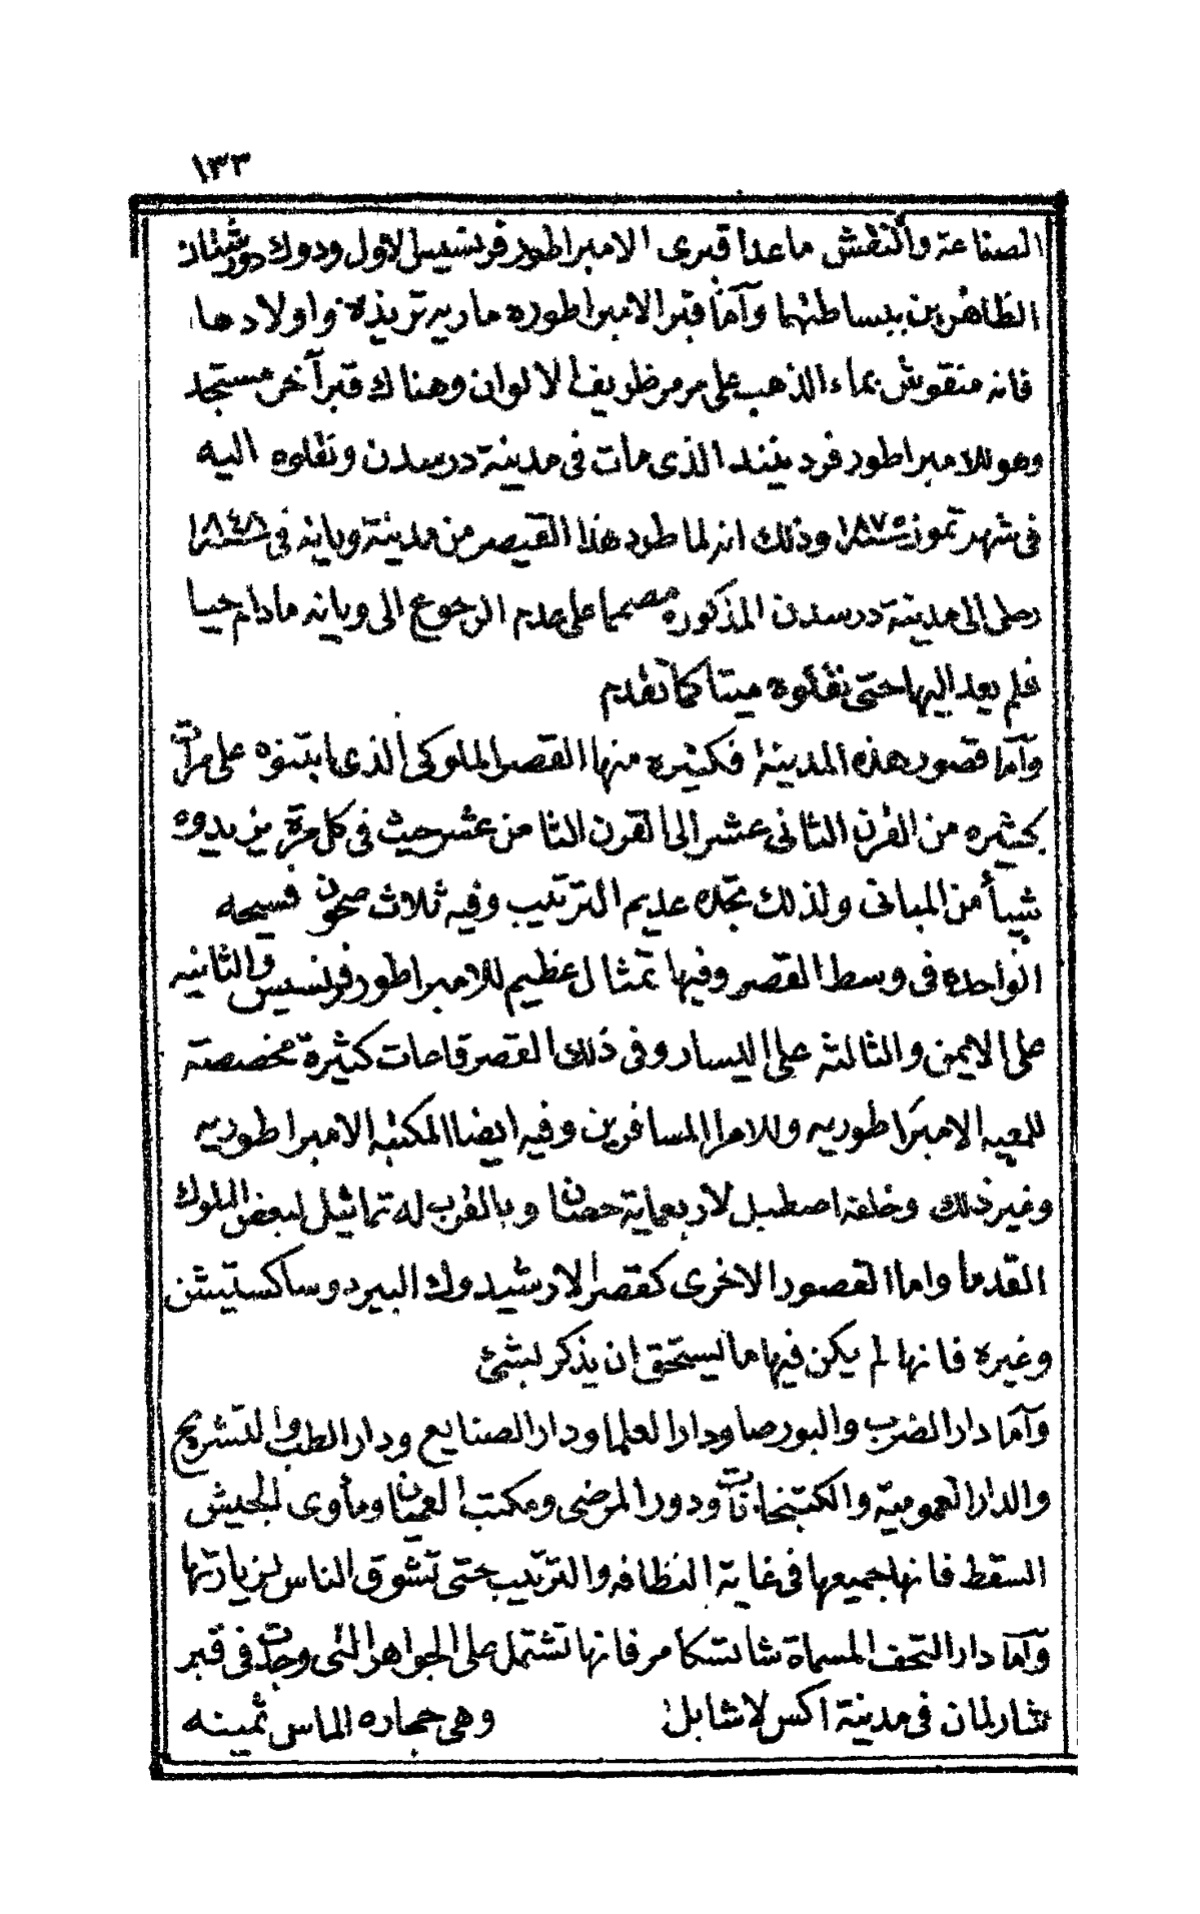 ١٣٣
الصناعة والنقش ماعدا قبرى الامبراطور فرنسيس الاول ودوك دورشطان
الظاهرين ببساطتهما وأما قبر الامبراطوره ماريه تريزه واولادها
فانه منقوش بماء الذهب على مرمر ظريف الالوان وهناك قبر آخر مستجد
وهو للامبراطور فرديننند الذى مات فى مدينة درسدن ونقلوه اليه
فى شهر تموز سنة ١٨٧٥ وذلك انه لما طرد هذا القيصر من مدينة ويانه فى سنة ١٨٤٨
رحل الى مدينة درسدن المذكوره مصمما على عدم الرجوع الى ويانه مادام حيا
فلم يعد اليها حتى نقلوه ميتا كما تقدم
وأما قصور هذه المدينة فكثيره منها القصر الملوكى الذى ابتنوه على مرات
كثيره من القرن الثانى عشر الى القرن الثامن عشر حيث فى كل مرة يزيدوه
شيأ من المبانى ولذلك تجده عديم الترتيب وفيه ثلاث صحون فسيحه
الواحده فى وسط القصر وفيها تمثال عظيم للامبراطور فرنسيس والثانيه
على الايمن والثالثة على اليسار وفى ذلك القصر قاعات كثيرة مخصصة
للمعيه الامبراطوريه وللامرا المسافرين وفيه ايضا المكتبه الامبراطوريه
وغير ذلك وخلفه اصطبل لاربعماية حصان وبالقرب له تماثيل لبعض الملوك
القدما واما القصور الاخرى كقصر الارشيدوك البير دوساكستيشن
وغيره فانها لم يكن فيها ما يستحق ان يذكر بشئ
وأما دار الضرب والبورصا ودار العلما ودار الصنايع ودار الطب والتشريح
والدار العموميه والكتبخانات ودور المرضى ومكتب العميان ومأوى الجيش
السقط فانها جميعها فى غاية النظافه والترتيب حتى تشوق الناس لزيارتها
وأما دار التحف المسماة شاتسكامر فانها تشتمل على الجواهر التى وجدت فى قبر
شارلمان فى مدينة اكس لاشابل وهى حجاره الماس ثمينه